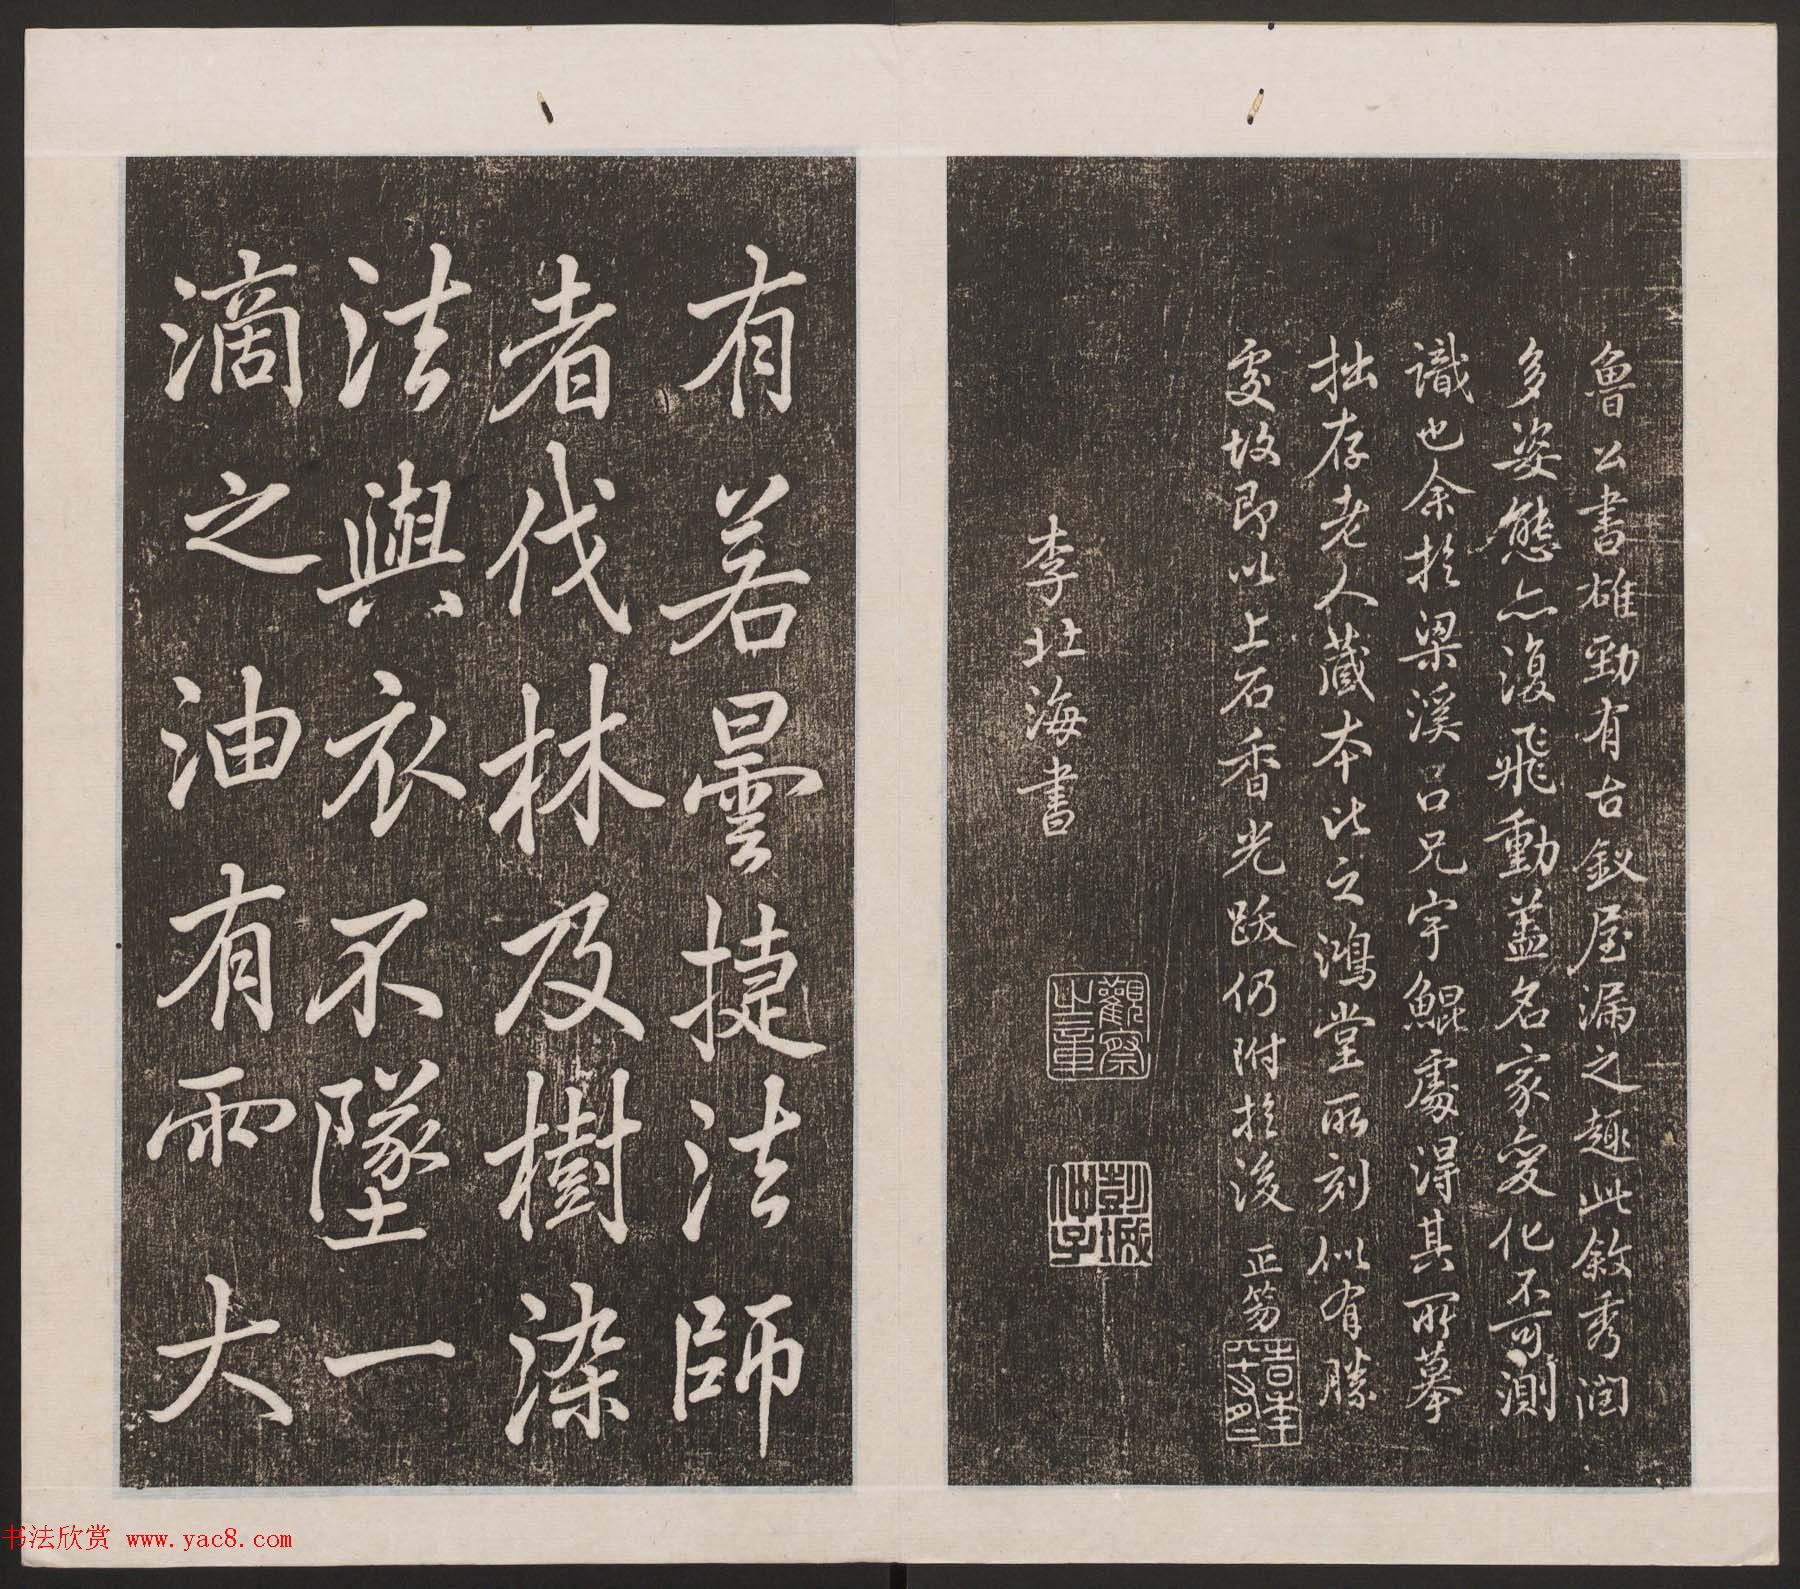 魯公書雄勁有古釵屋漏之趣此敘秀潤
多姿態亦復飛動蓋名家變化不可測
識也余於梁溪呂兄宇鯤處得其所摹
拙存老人藏本比之鴻堂所刻似有勝
處故即以上石香光跋仍附於後 正笏
李北海書
觀察之章
彭城仲子
有若曇捷法師
者伐林及樹染
法與衣不墜一
滴之油有雨大
书法欣赏 www.yac8.com